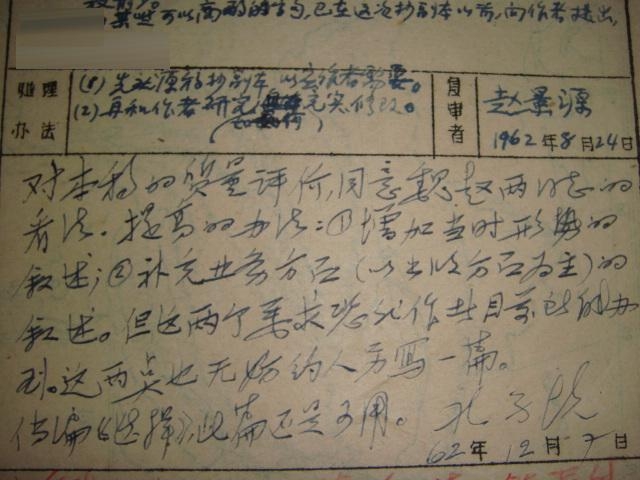 某些可以商酌的字句,已在这次抄副本以前,向作者提出,
处理办法
(1) 先就原稿抄副本 以应读者需要。
(2) 再和作者研究如何充实修改。
复审者
赵景源
1962年8月24日
对本稿的质量评价,同意魏赵两同志的
看法。提高的办法:①增加当时形势的
叙述;②补充业务方面(以出版方面为主)的
叙述。但这两个要求恐非作者目前所能办
到。这两点也无妨约人另写一篇。
倘编《选择》,此篇还是可用。
62年12月7日